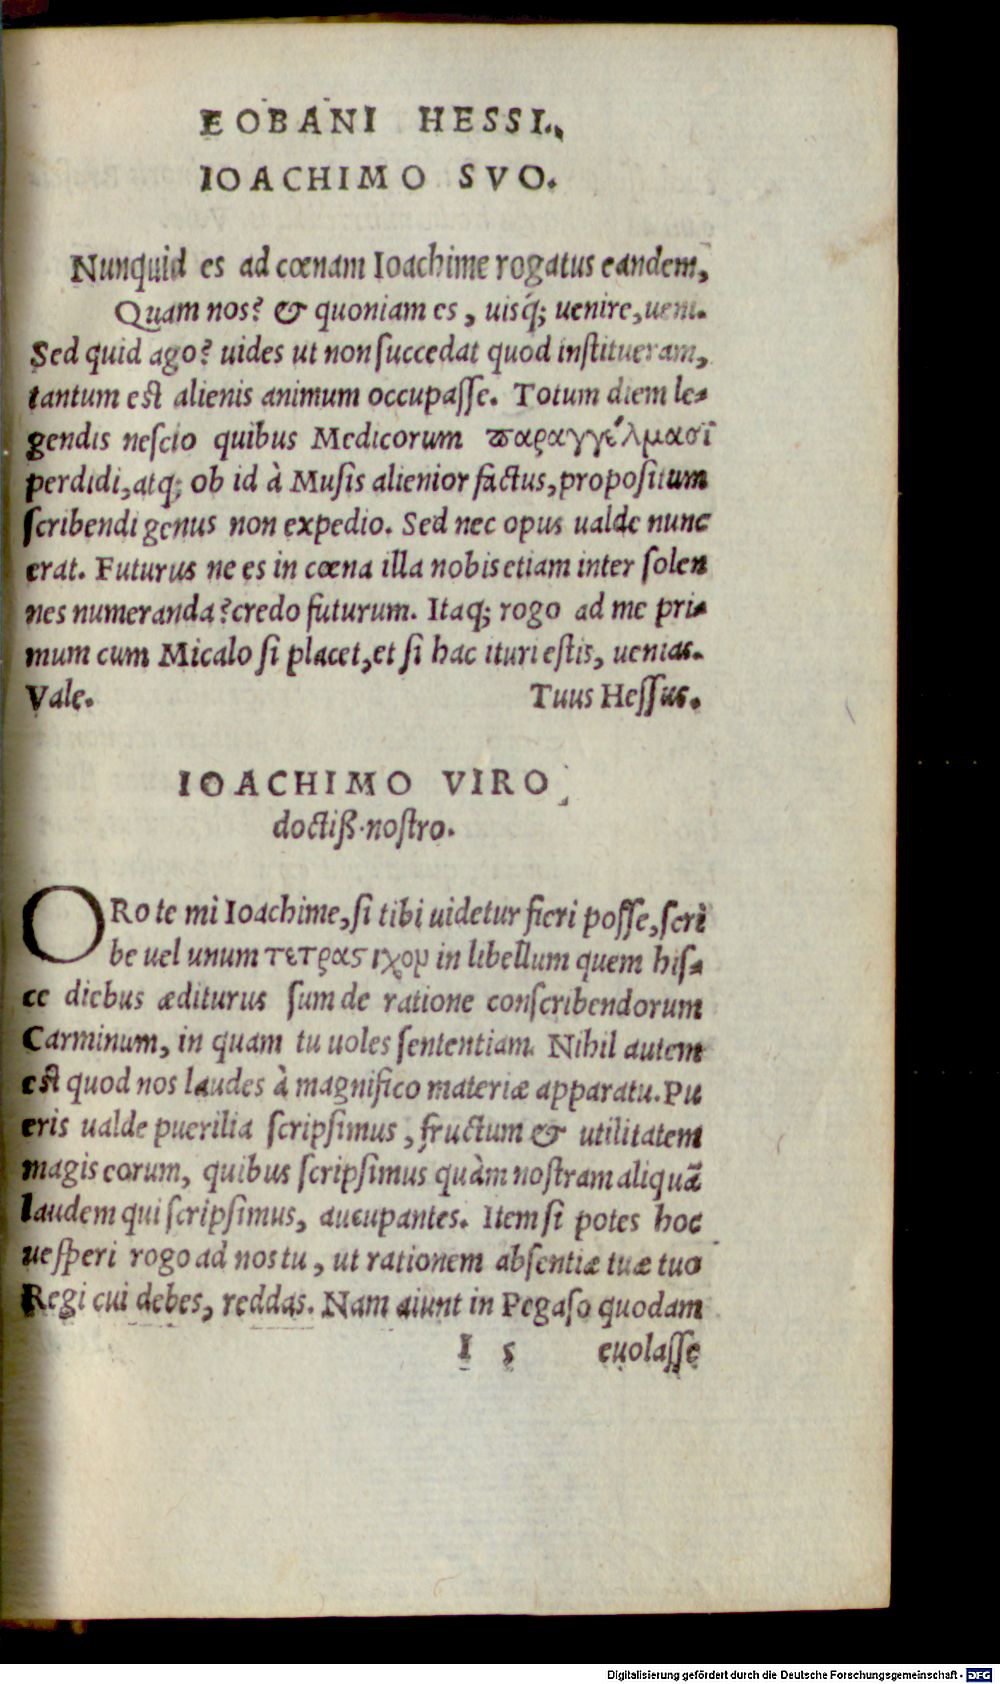 EOBANI HESSI.
IOACHIMO SVO.
Nunquid es ad cœnam Ioachime rogatus eandem,
Quam nos? & quoniam es, uisq́; uenire, ueni.
Sed quid ago? uides ut non ſuccedat quod inſtitueram,
tantum eſt alienis animum occupaſſe. Totum diem le-
gendis neſcio quibus Medicorum ϖαραγγέλμασϊ
perdidi, atq; ob id à Muſis alienior factus, propoſitum
ſcribendi genus non expedio. Sed nec opus ualde nunc
erat. Futurus ne es in cœna illa nobis etiam inter ſolen
nes numeranda? credo futurum. Itaq; rogo ad me pri-
mum cum Micalo ſi placet, et ſi hac ituri eſtis, uenias.
Vale. Tuus Heſſus.
IOACHIMO VIRO
doctiß. noſtro.
ORo te mi Ioachime, ſi tibi uidetur fieri poſſe, ſcri
be uel unum τετραςιχον in libellum quem hiſ-
ce diebus æditurus ſum de ratione conſcribendorum
Carminum, in quam tu uoles ſententiam. Nihil autem
eſt quod nos laudes à magnifico materiæ apparatu. Pu
eris ualde puerilia ſcripſimus, fructum & utilitatem
magis eorum, quibus ſcripſimus quàm noſtram aliquã
laudem qui ſcripſimus, aucupantes. Item ſi potes hoc
ueſperi rogo ad nos tu, ut rationem abſentiæ tuæ tuo
Regi cui debes, reddas. Nam aiunt in Pegaſo quodam
I 5 euolaſſe
Digitalisierung gefördert durch die Deutsche Forschungsgemeinschaft - DFG